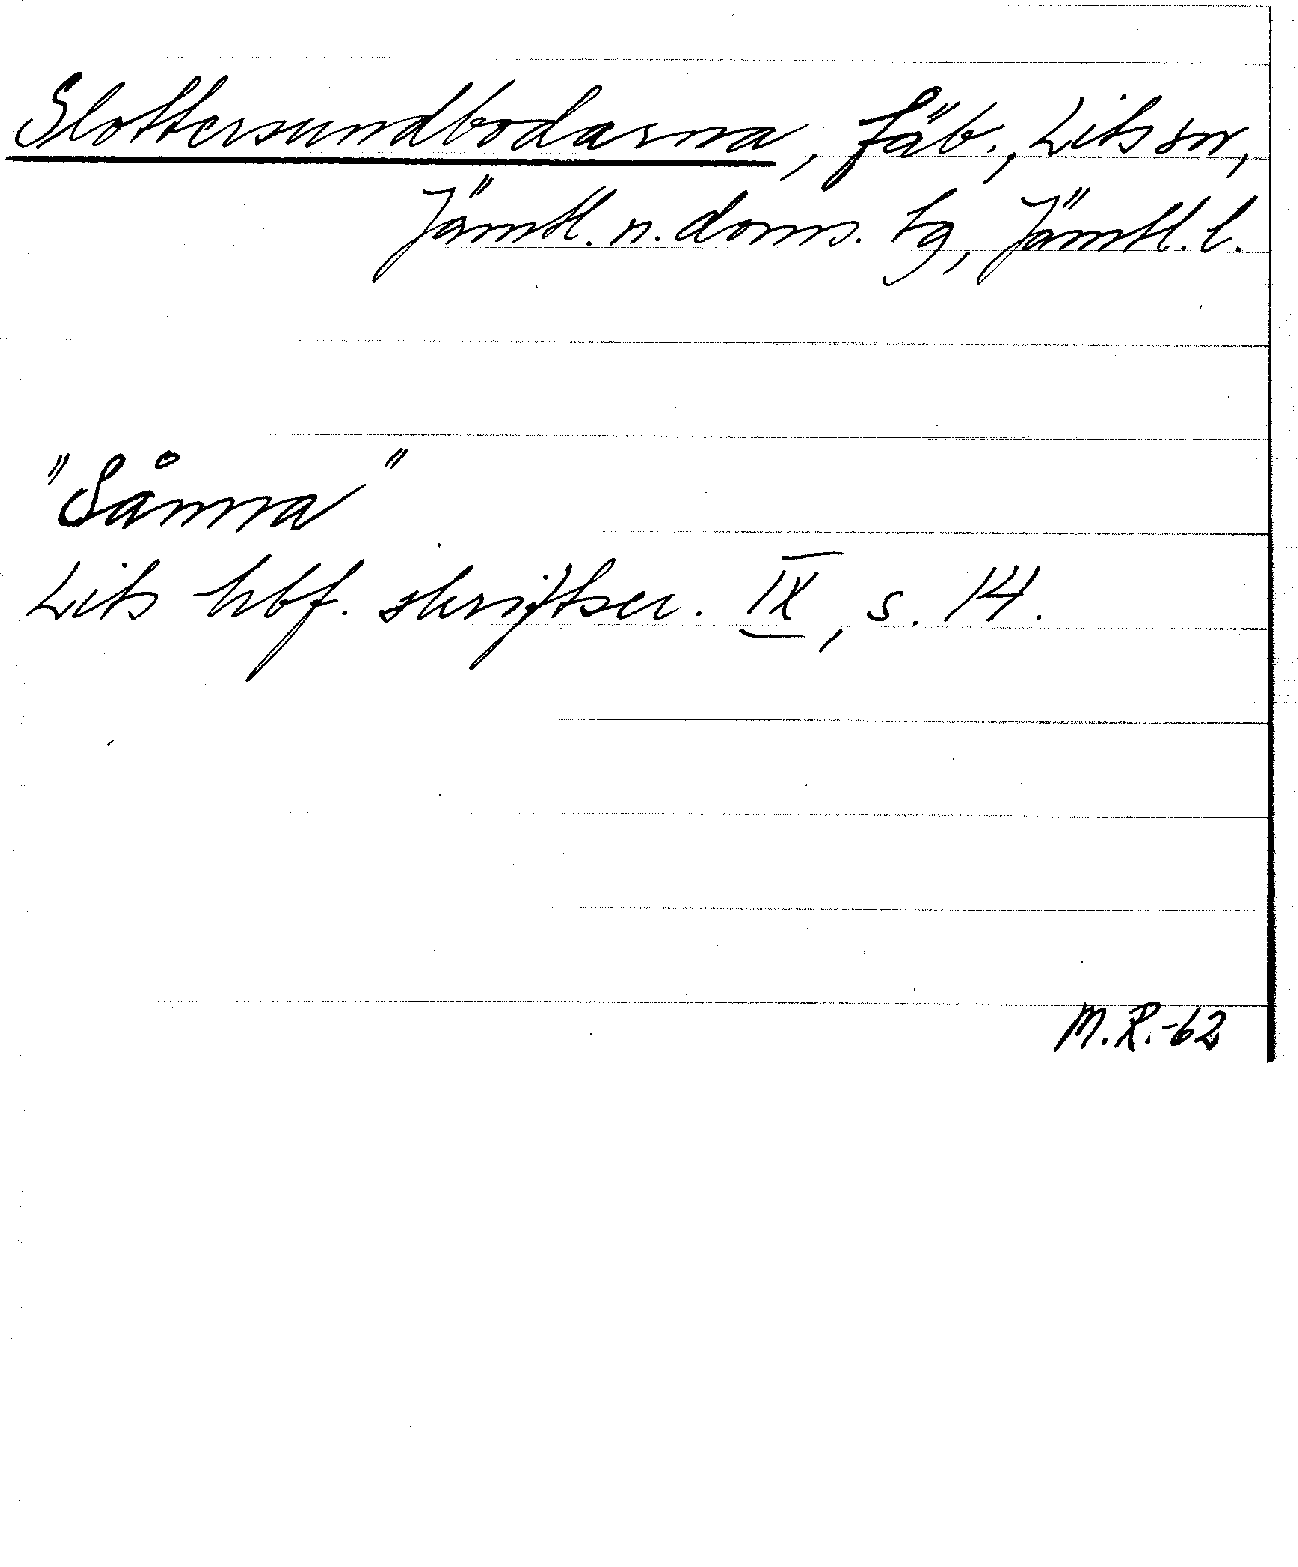 Slottersundbodarna, fäb., Lits sn,
Jämtl. n. doms. tg, Jämtl. l.
"Sånna"
Lits hbf. skriftser. IX, s. 14.
M.R.-62